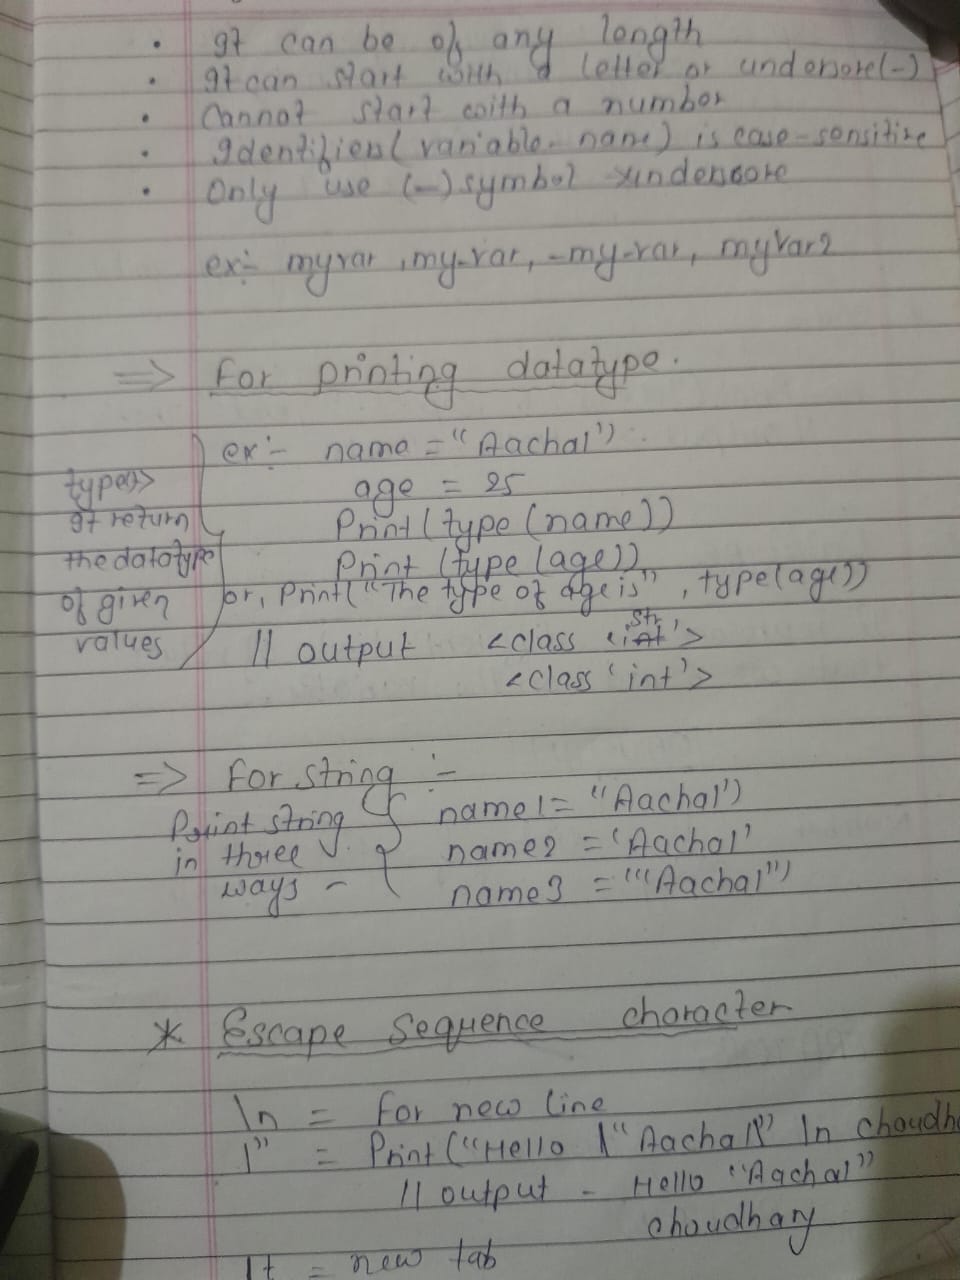 • It can be of any length
• It can start with a letter or underscore(_)
• Cannot start with a number
• Identifiers (variable-name) is case-sensitive
• Only use (_) symbol underscore
ex:- myvar, my_var, _my_var, myVar2
=> For printing datatype.
ex:- name = "Aachal")
age = 25
Print (type (name))
Print (type (age))
or, Print("The type of age is", type(age))
// output <class 'str'>
<class 'int'>
type()=>
It return
the datatype
of given
values
=> For string :-
Print string
in three
ways -
name1 = "Aachal")
name2 = 'Aachal'
name3 = '"Aachal"')
* Escape Sequence character
\n = For new line
\" = Print("Hello \"Aachal\" \n choudh
// output - Hello "Aachal"
choudhary
\t = new tab